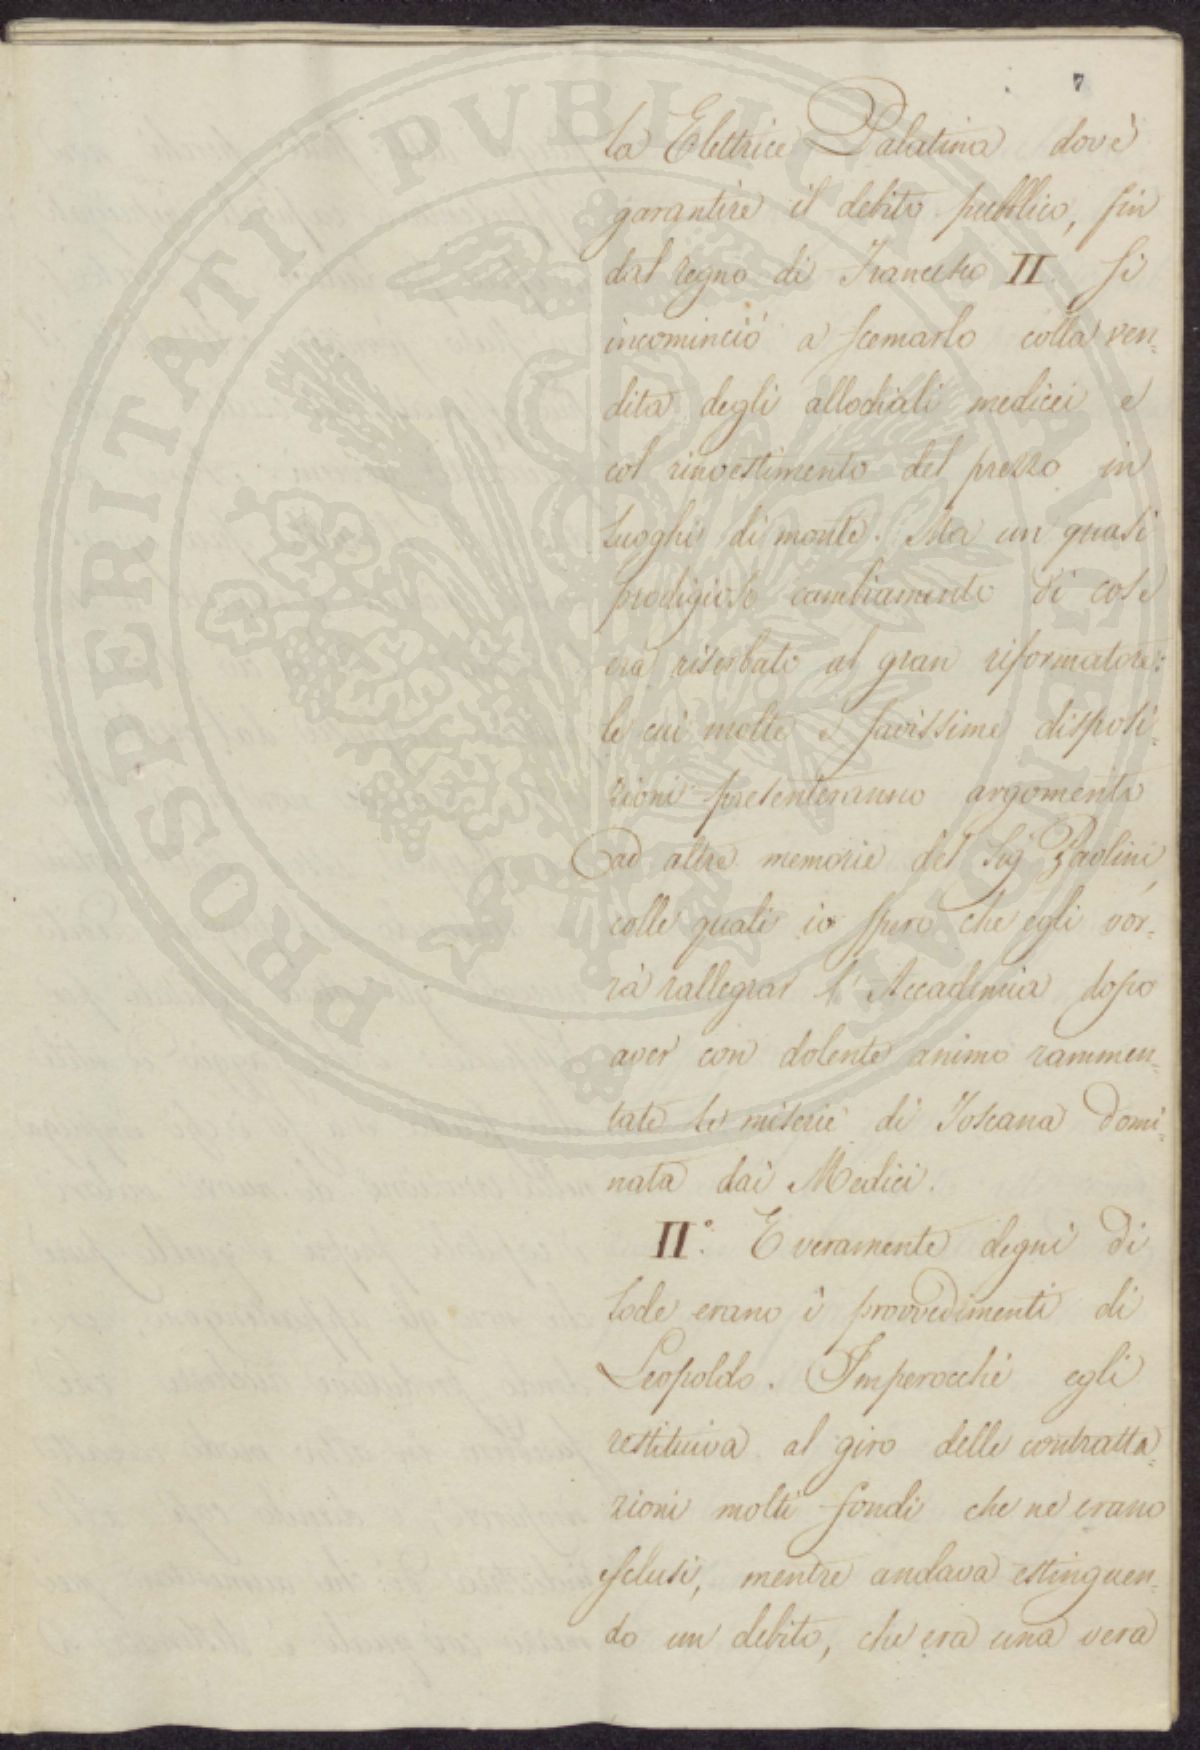 7
la Elettrice Palatina dovè
garantire il debito pubblico, fin
dal regno di Francesco II. si
incominciò a scemarlo colla ven-
dita degli allodiali medicei e
col rinvestimento del prezzo in
luoghi di monte. Ma un quasi
prodigioso cambiamento di cose
era riserbato al gran riformatore:
le cui molte e savissime disposi-
zioni presenteranno argomento
ad altre memorie del Sig.r Paolini,
colle quali io spero che egli vor-
rà rallegrar l'Accademia dopo
aver con dolente animo rammen-
tate le miserie di Toscana domi-
nata dai Medici.
II°. E veramente degni di
lode erano i provvedimenti di
Leopoldo. Imperocchè egli
restituiva al giro delle contratta-
zioni molti fondi che ne erano
esclusi, mentre andava estinguen-
do un debito, che era una vera
PROSPERITATI PVBLICAE AVGENDAE